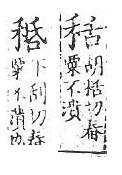 秳
胡括切舂
粟不潰
下刮切舂
粟不潰也